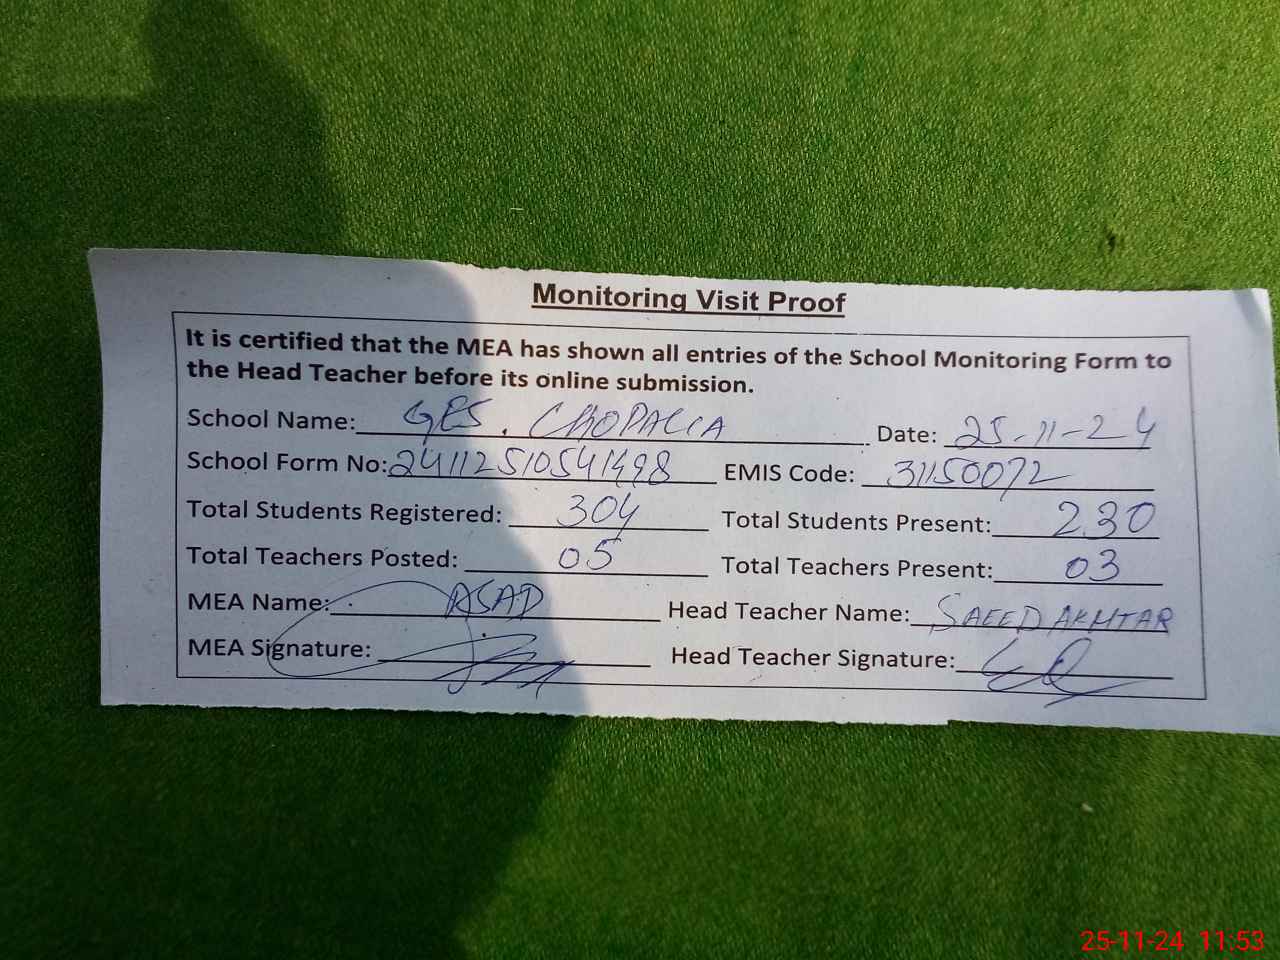 Monitoring Visit Proof
It is certified that the MEA has shown all entries of the School Monitoring Form to
the Head Teacher before its online submission.
School Name: GPS. CHOPALIA Date: 25-11-24
School Form No: 24112510541498 EMIS Code: 31150072
Total Students Registered: 304 Total Students Present: 230
Total Teachers Posted: 05 Total Teachers Present: 03
MEA Name: ASAD Head Teacher Name: SAEED AKHTAR
MEA Signature: Head Teacher Signature:
25-11-24 11:53